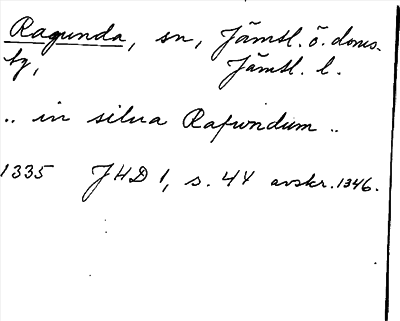 Ragunda, sn, Jämtl. ö. doms.
tg, Jämtl. l.
.. in silua Rafwndum ..
1335 JHD 1, s. 44 avskr. 1346.